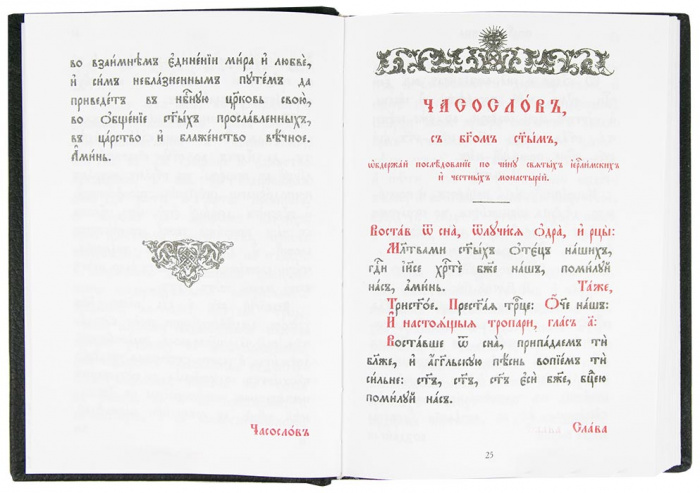 во взаи́мнѣмъ є҆дине́нїи ми́ра и҆ любвѐ,
и҆ си́мъ небла́зненнымъ путе́мъ да
приведе́тъ въ нб҃ную цр҃ковь свою̀,
во ѻ҆бще́нїе ст҃ы́хъ просла́вленныхъ,
въ ца́рство и҆ блаже́нство вѣ́чное.
А҆ми́нь.
Часосло́въ
ЧАСОСЛО́ВЪ,
съ бг҃омъ ст҃ы́мъ,
ѡ҆бдержа́й послѣ́дованїе по чи́ну свѧты́хъ і҆ер҃ли́мскихъ
и҆ честны́хъ монастыре́й.
Воста́въ ѿ сна̀, ѿлучи́сѧ ѻ҆дра̀, и҆ рцы̀:
Мл҃твами ст҃ы́хъ ѻ҆те́цъ на́шихъ,
гдⷭ҇и і҆и҃се хрⷭ҇тѐ бж҃е на́шъ, поми́луй
на́съ, а҆ми́нь. Та́же,
Трист҃о́е. Прест҃а́ѧ трⷪ҇це: Ѻ҆́ч҃е на́шъ:
И҆ настоѧ́щыѧ тропарѝ, гла́съ а҃:
Воста́вше ѿ сна̀, припа́даемъ тѝ
бл҃же, и҆ а҆́гг҃льскую пѣ́снь вопїе́мъ тѝ
си́льне: ст҃ъ, ст҃ъ, ст҃ъ є҆сѝ бж҃е, бцⷣею
поми́луй на́съ.
Сла́ва
25